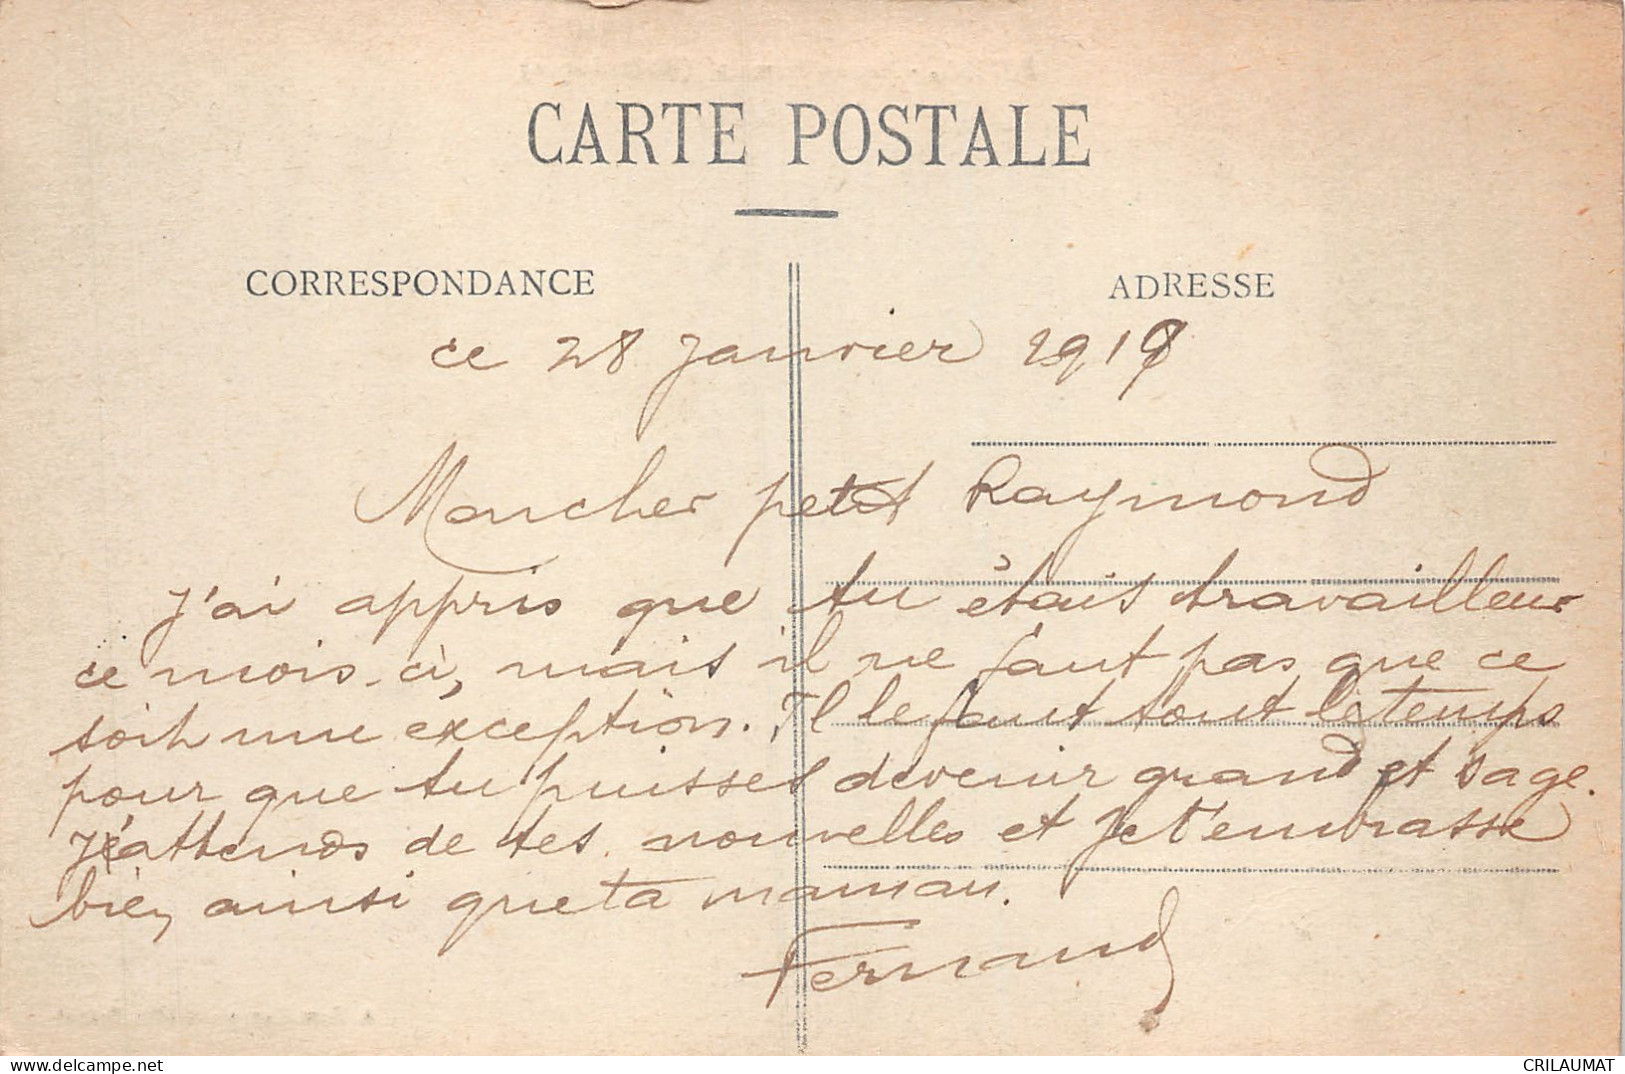 CARTE POSTALE
CORRESPONDANCE
ADRESSE
ce 28 Janvier
Mon cher petit Raymond
J'ai appris que tu étais travailleur
ce mois-ci, mais il ne faut pas que ce
soit une exception. Il le faut tout le temps
pour que tu puisses devenir grand et sage.
J'attends de tes nouvelles et Je t'embrasse
bien ainsi que ta maman.
Fernand
delcampe.net
CRILAUMAT